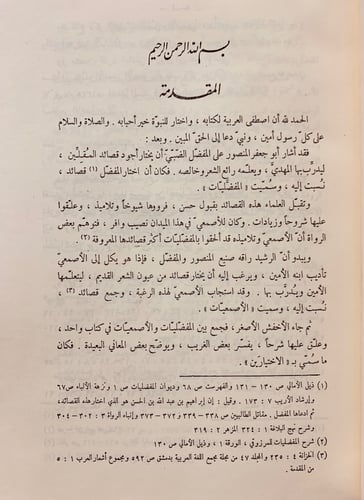 بسم الله الرحمن الرحيم
المقدمة
الحمد لله أن اصطفى العربية لكتابه ، واختار للنبوّة خير أحبابه . والصلاة والسلام
على كلّ رسول أمين ، ونبيّ دعا إلى الحقّ المبين . وبعد :
فقد أشار أبو جعفر المنصور على المفضّل الضبّيّ أن يختار أجود قصائد المُقلّين ،
ليدرّب بها المهديّ ، ويعلّمه رائع الشعر وخالصه . فكان أن اختار المفضّل (١) قصائد ،
نُسبت إليه ، وسُمّيت « المفضّليّات » .
وتقبّل العلماء هذه القصائد بقبول حسن ، فرووها شيوخاً وتلاميذ ، وعلّقوا
عليها شروحاً وزيادات . وكان للأصمعيّ في هذا الميدان نصيب وافر ، فتوهّم بعض
الرواة أنّ الأصمعيّ وتلاميذه قد ألحقوا بالمفضليات أكثر قصائدها المعروفة (٢) .
ويبدو أنّ الرشيد راقه صنيع المنصور والمفضّل ، فإذا هو يكل إلى الأصمعيّ
تأديب ابنه الأمين ، ويرغب إليه أن يختار قصائد من عيون الشعر القديم ، ليتعلّمها
الأمين ويُدرّب بها . وقد استجاب الأصمعيّ لهذه الرغبة ، وجمع قصائد (٣) ،
نُسبت إليه ، وسميت « الأصمعيات » .
ثم جاء الأخفش الأصغر ، فجمع بين المفضّليّات والأصمعيات في كتاب واحد ،
وعلّق عليها شرحاً ، يفسّر بعض الغريب ، ويوضّح بعض المعاني البعيدة . فكان
ما سمّي بـ « الاختيارين » .
(١) ذيل الأمالي ص ١٣٠ – ١٣١ والفهرست ص ٦٨ وديوان المفضليات ص ١ ونزهة الألباء ص ٦٧
وإرشاد الأريب ٧ : ١٧٣ . وقيل : إن إبراهيم بن عبد الله بن الحسن هو الذي اختار هذه القصائد ،
ثم ادعاها المفضل . مقاتل الطالبيين ص ٣٣٨ – ٣٣٩ و ٣٧٢ – ٣٧٣ وإنباه الرواة ٣ : ٣٠٢ – ٣٠٤
وشرح نهج البلاغة ١ : ٣٢٤ المزهر ٢ : ٣١٩
(٢) شرح المفضليات للمرزوقي ، الورقة ١ ، وذيل الأمالي ص ١٣٠
(٣) الخزانة ٤ : ٢٣٥ والمجلد ٤٧ من مجلة مجمع اللغة العربية بدمشق ص ٥٩٢ ومجموع أشعار العرب ١ : ٥
من المقدمة .